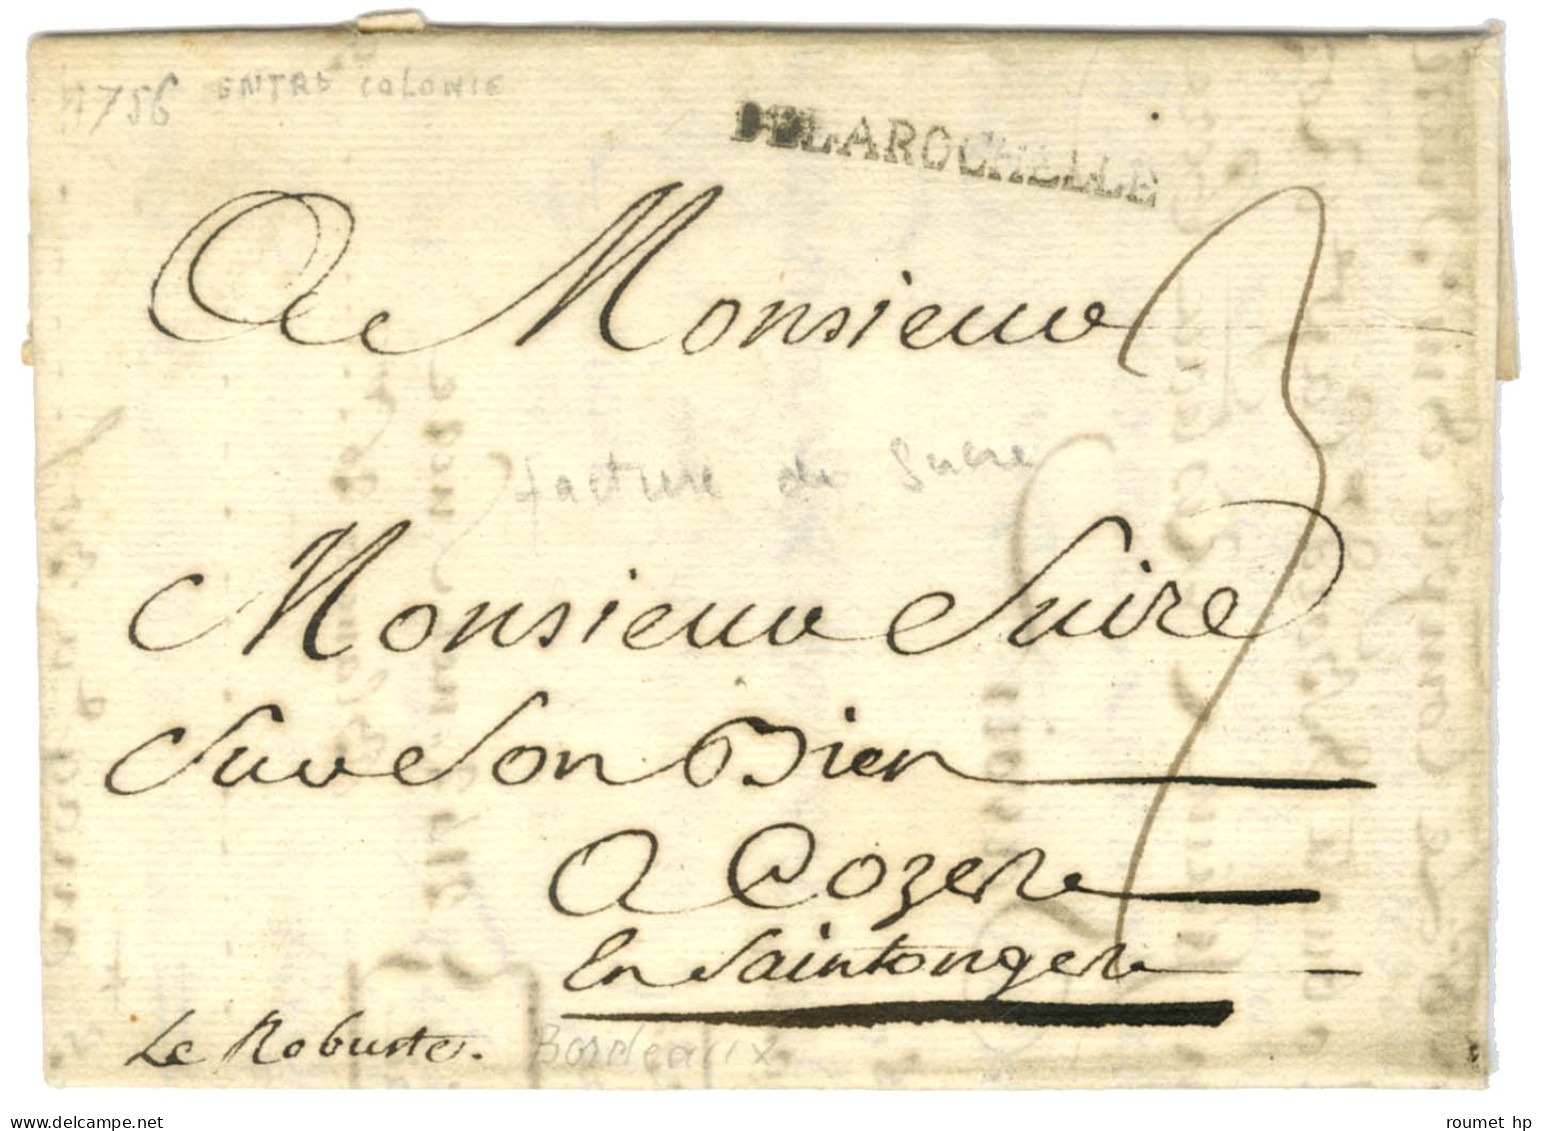 1756 ENTRE COLONIE
DELAROCHELLE
A Monsieur
3
facture de Sucre
Monsieur Suire
Sur Son Bien
A Cozes
En Saintonge
Le Robuste.
Bordeaux
www.delcampe.net
roumet hp